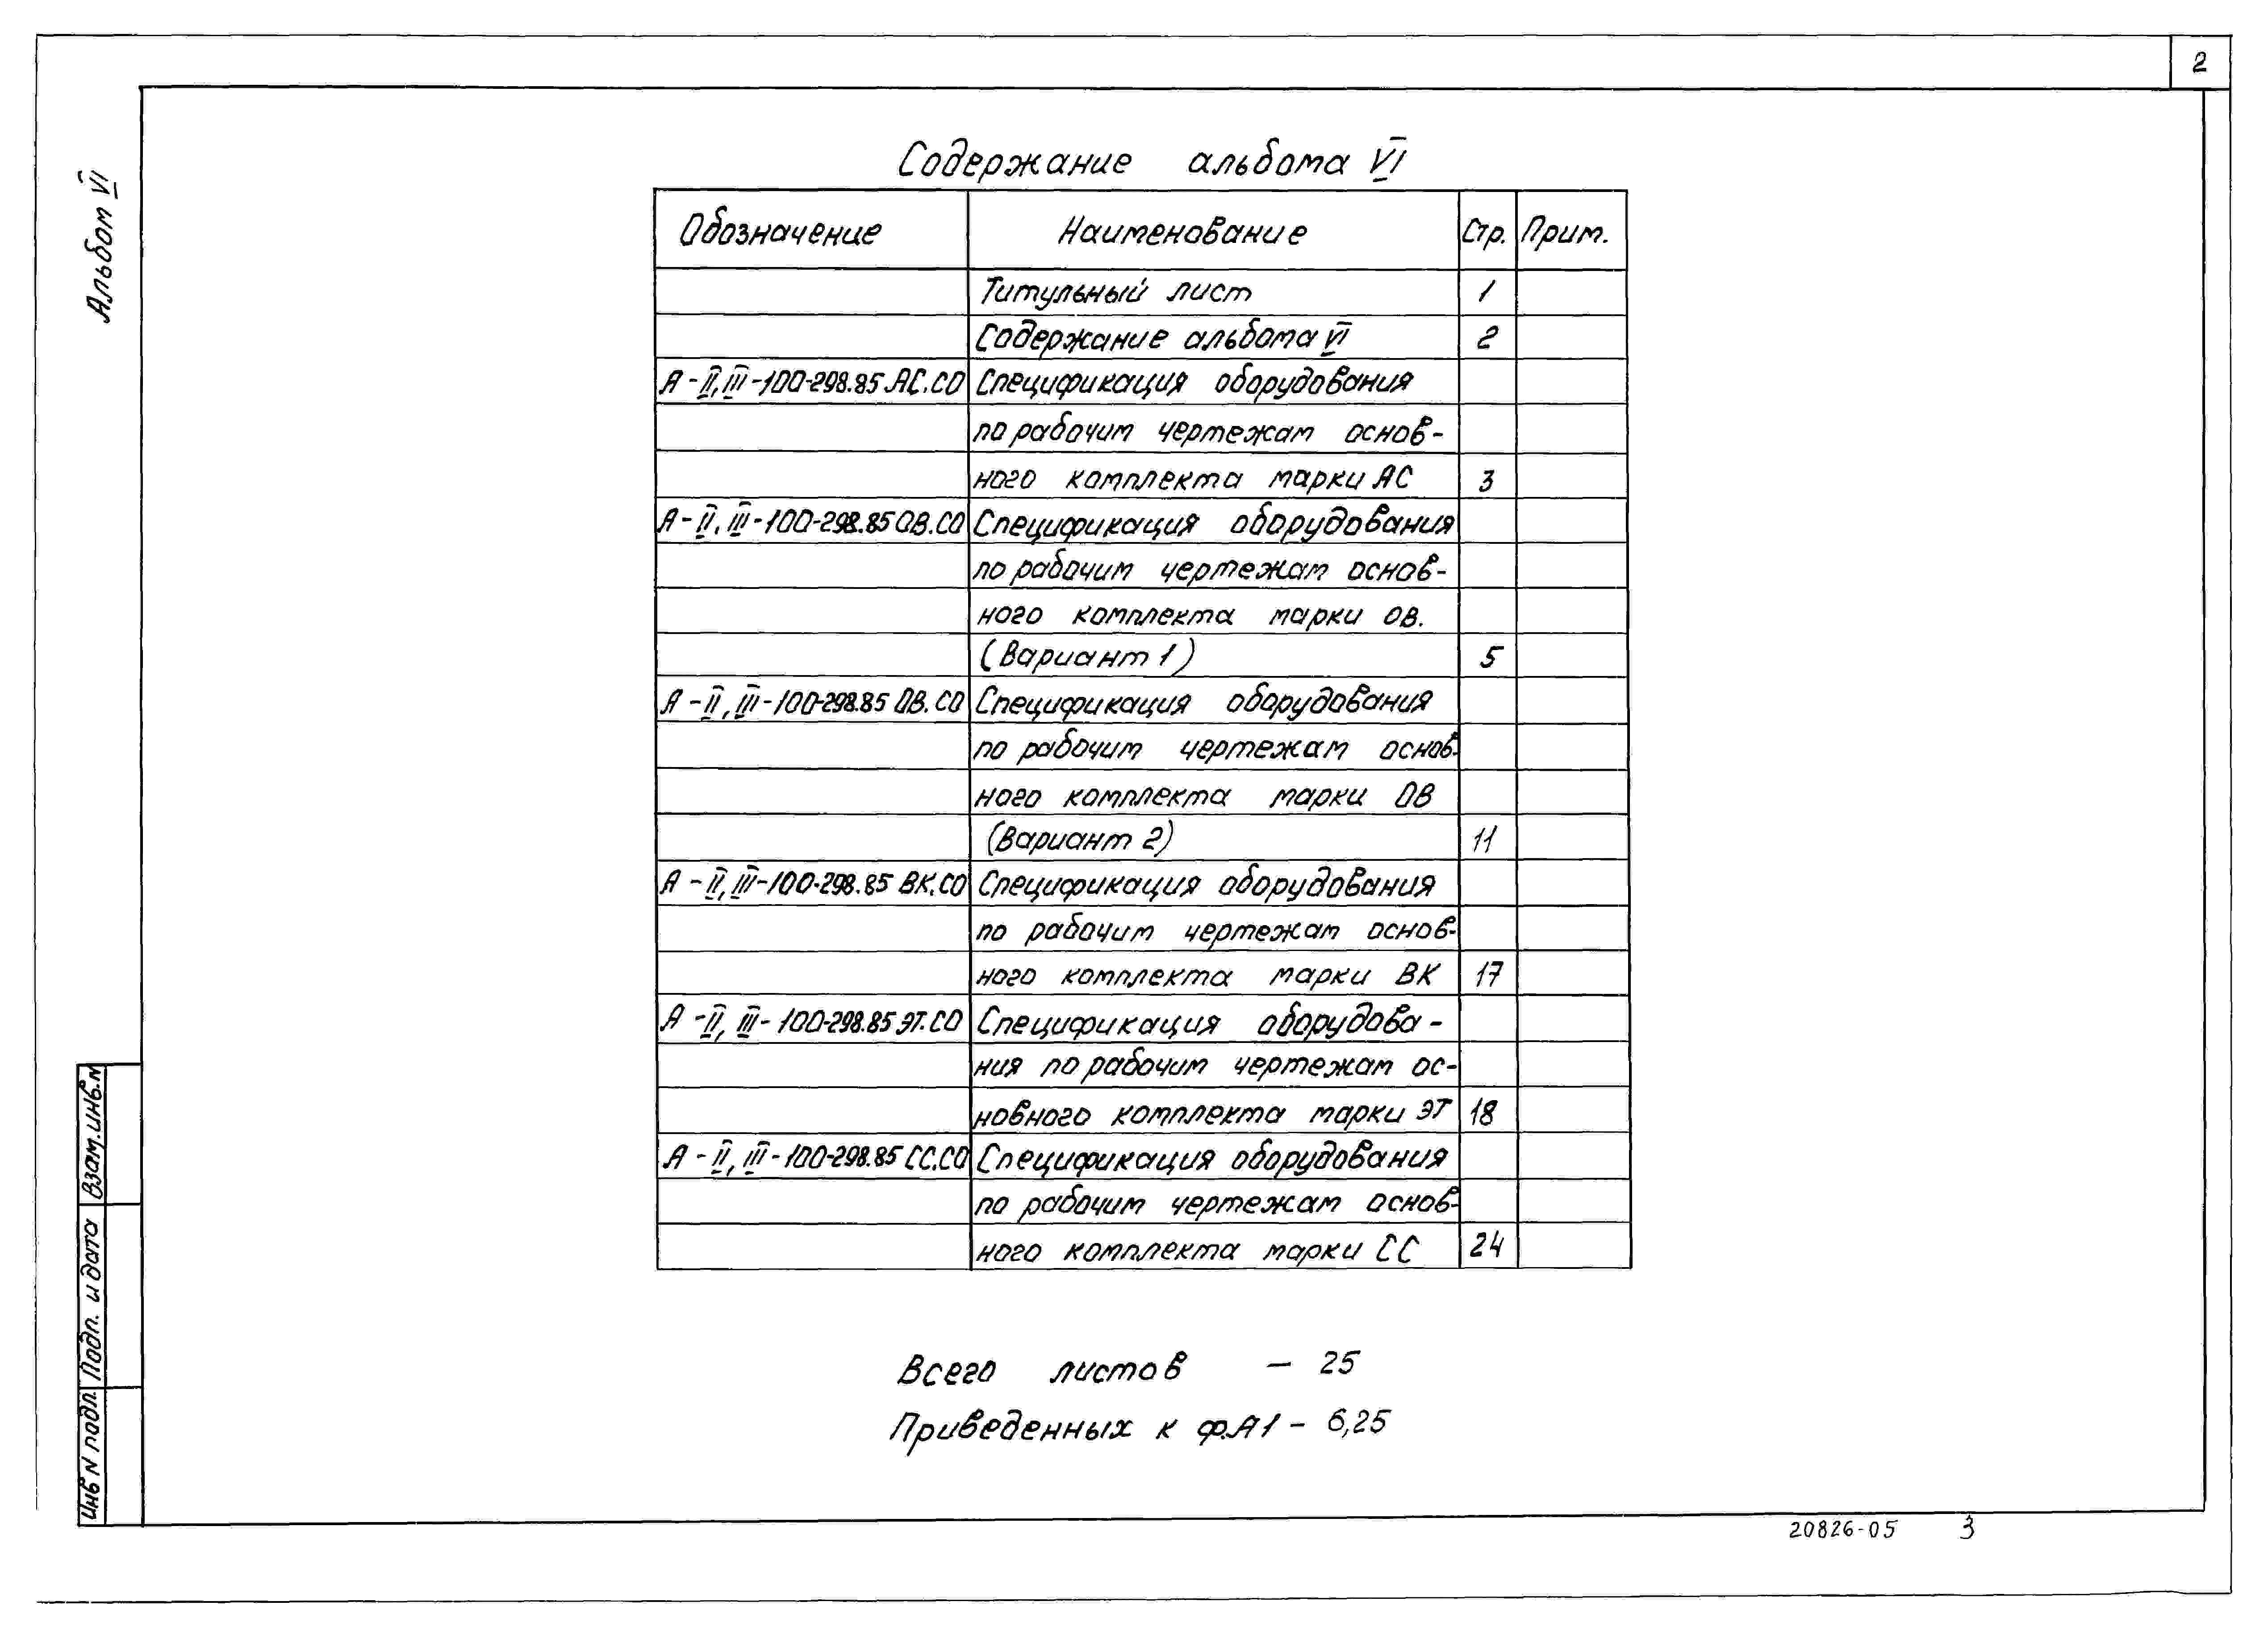 2
Альбом VI
Содержание альбома VI
Обозначение Наименование Стр. Прим.
Титульный лист 1
Содержание альбома VI 2
А-II,III-100-298.85 АС.СО Спецификация оборудования
по рабочим чертежам основ-
ного комплекта марки АС 3
А-II,III-100-298.85 ОВ.СО Спецификация оборудования
по рабочим чертежам основ-
ного комплекта марки ОВ.
(Вариант 1) 5
А-II,III-100-298.85 ОВ.СО Спецификация оборудования
по рабочим чертежам основ-
ного комплекта марки ОВ
(Вариант 2) 11
А-II,III-100-298.85 ВК.СО Спецификация оборудования
по рабочим чертежам основ-
ного комплекта марки ВК 17
А-II,III-100-298.85 ЭТ.СО Спецификация оборудова-
ния по рабочим чертежам ос-
новного комплекта марки ЭТ 18
А-II,III-100-298.85 СС.СО Спецификация оборудования
по рабочим чертежам основ-
ного комплекта марки СС 24
Всего листов - 25
Приведенных к ф.А1 - 6,25
Взам.инв.N
Подп. и дата
Инв N подл.
20826-05 3